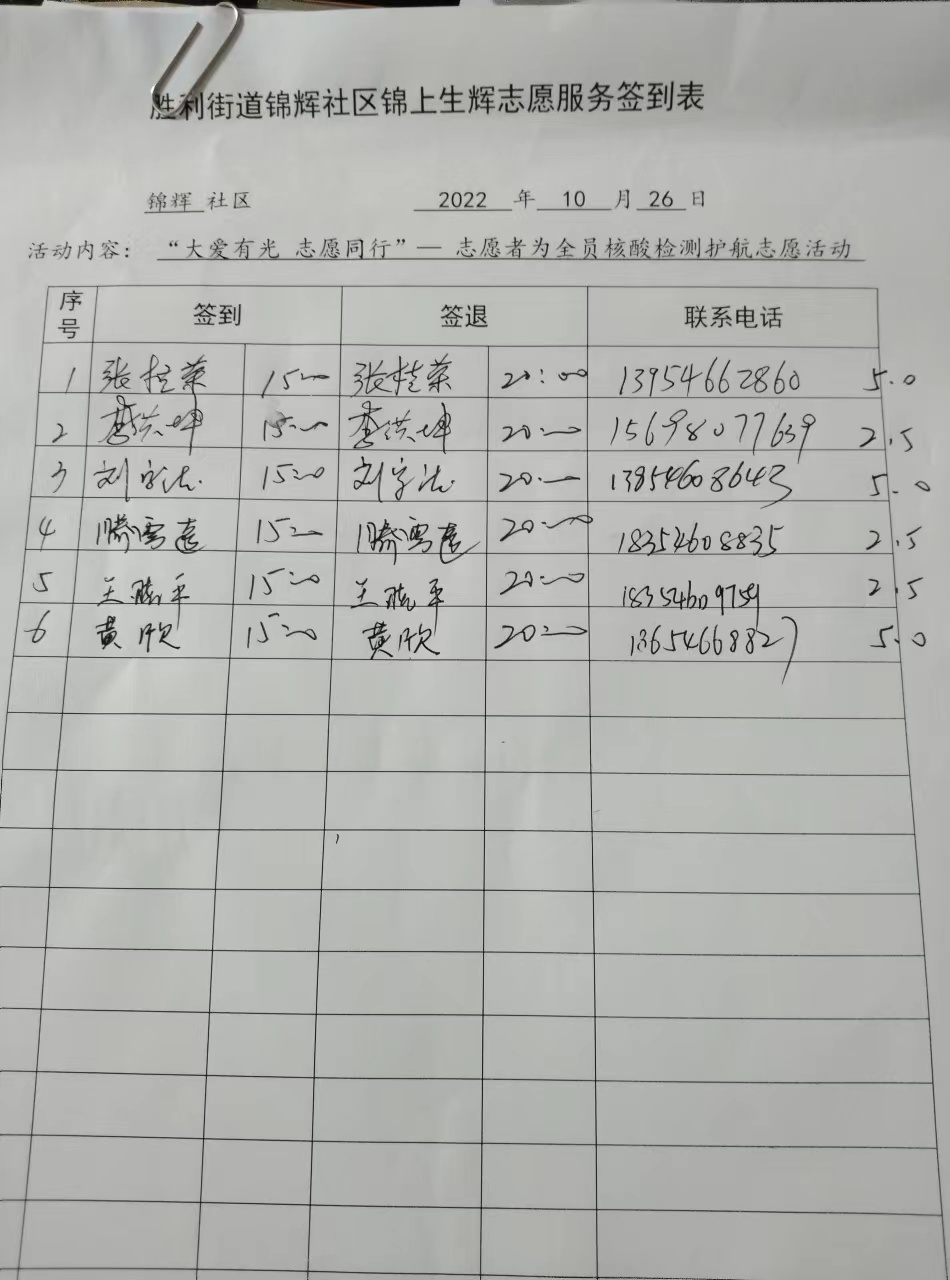 胜利街道锦辉社区锦上生辉志愿服务签到表
锦辉 社区 2022 年 10 月 26 日
活动内容： “大爱有光 志愿同行”— 志愿者为全员核酸检测护航志愿活动
序号 签到 签退 联系电话
1 张桂荣 15:00 张桂荣 20:00 13954662860 5.0
2 李洪坤 15:00 李洪坤 20:00 15698077639 2.5
3 刘 15:00 刘 20:00 13854608643 5.0
4 滕雪莲 15:00 滕雪莲 20:00 18354608835 2.5
5 王晓平 15:00 王晓平 20:00 18354609759 2.5
6 黄欣 15:00 黄欣 20:00 13654668827 5.0